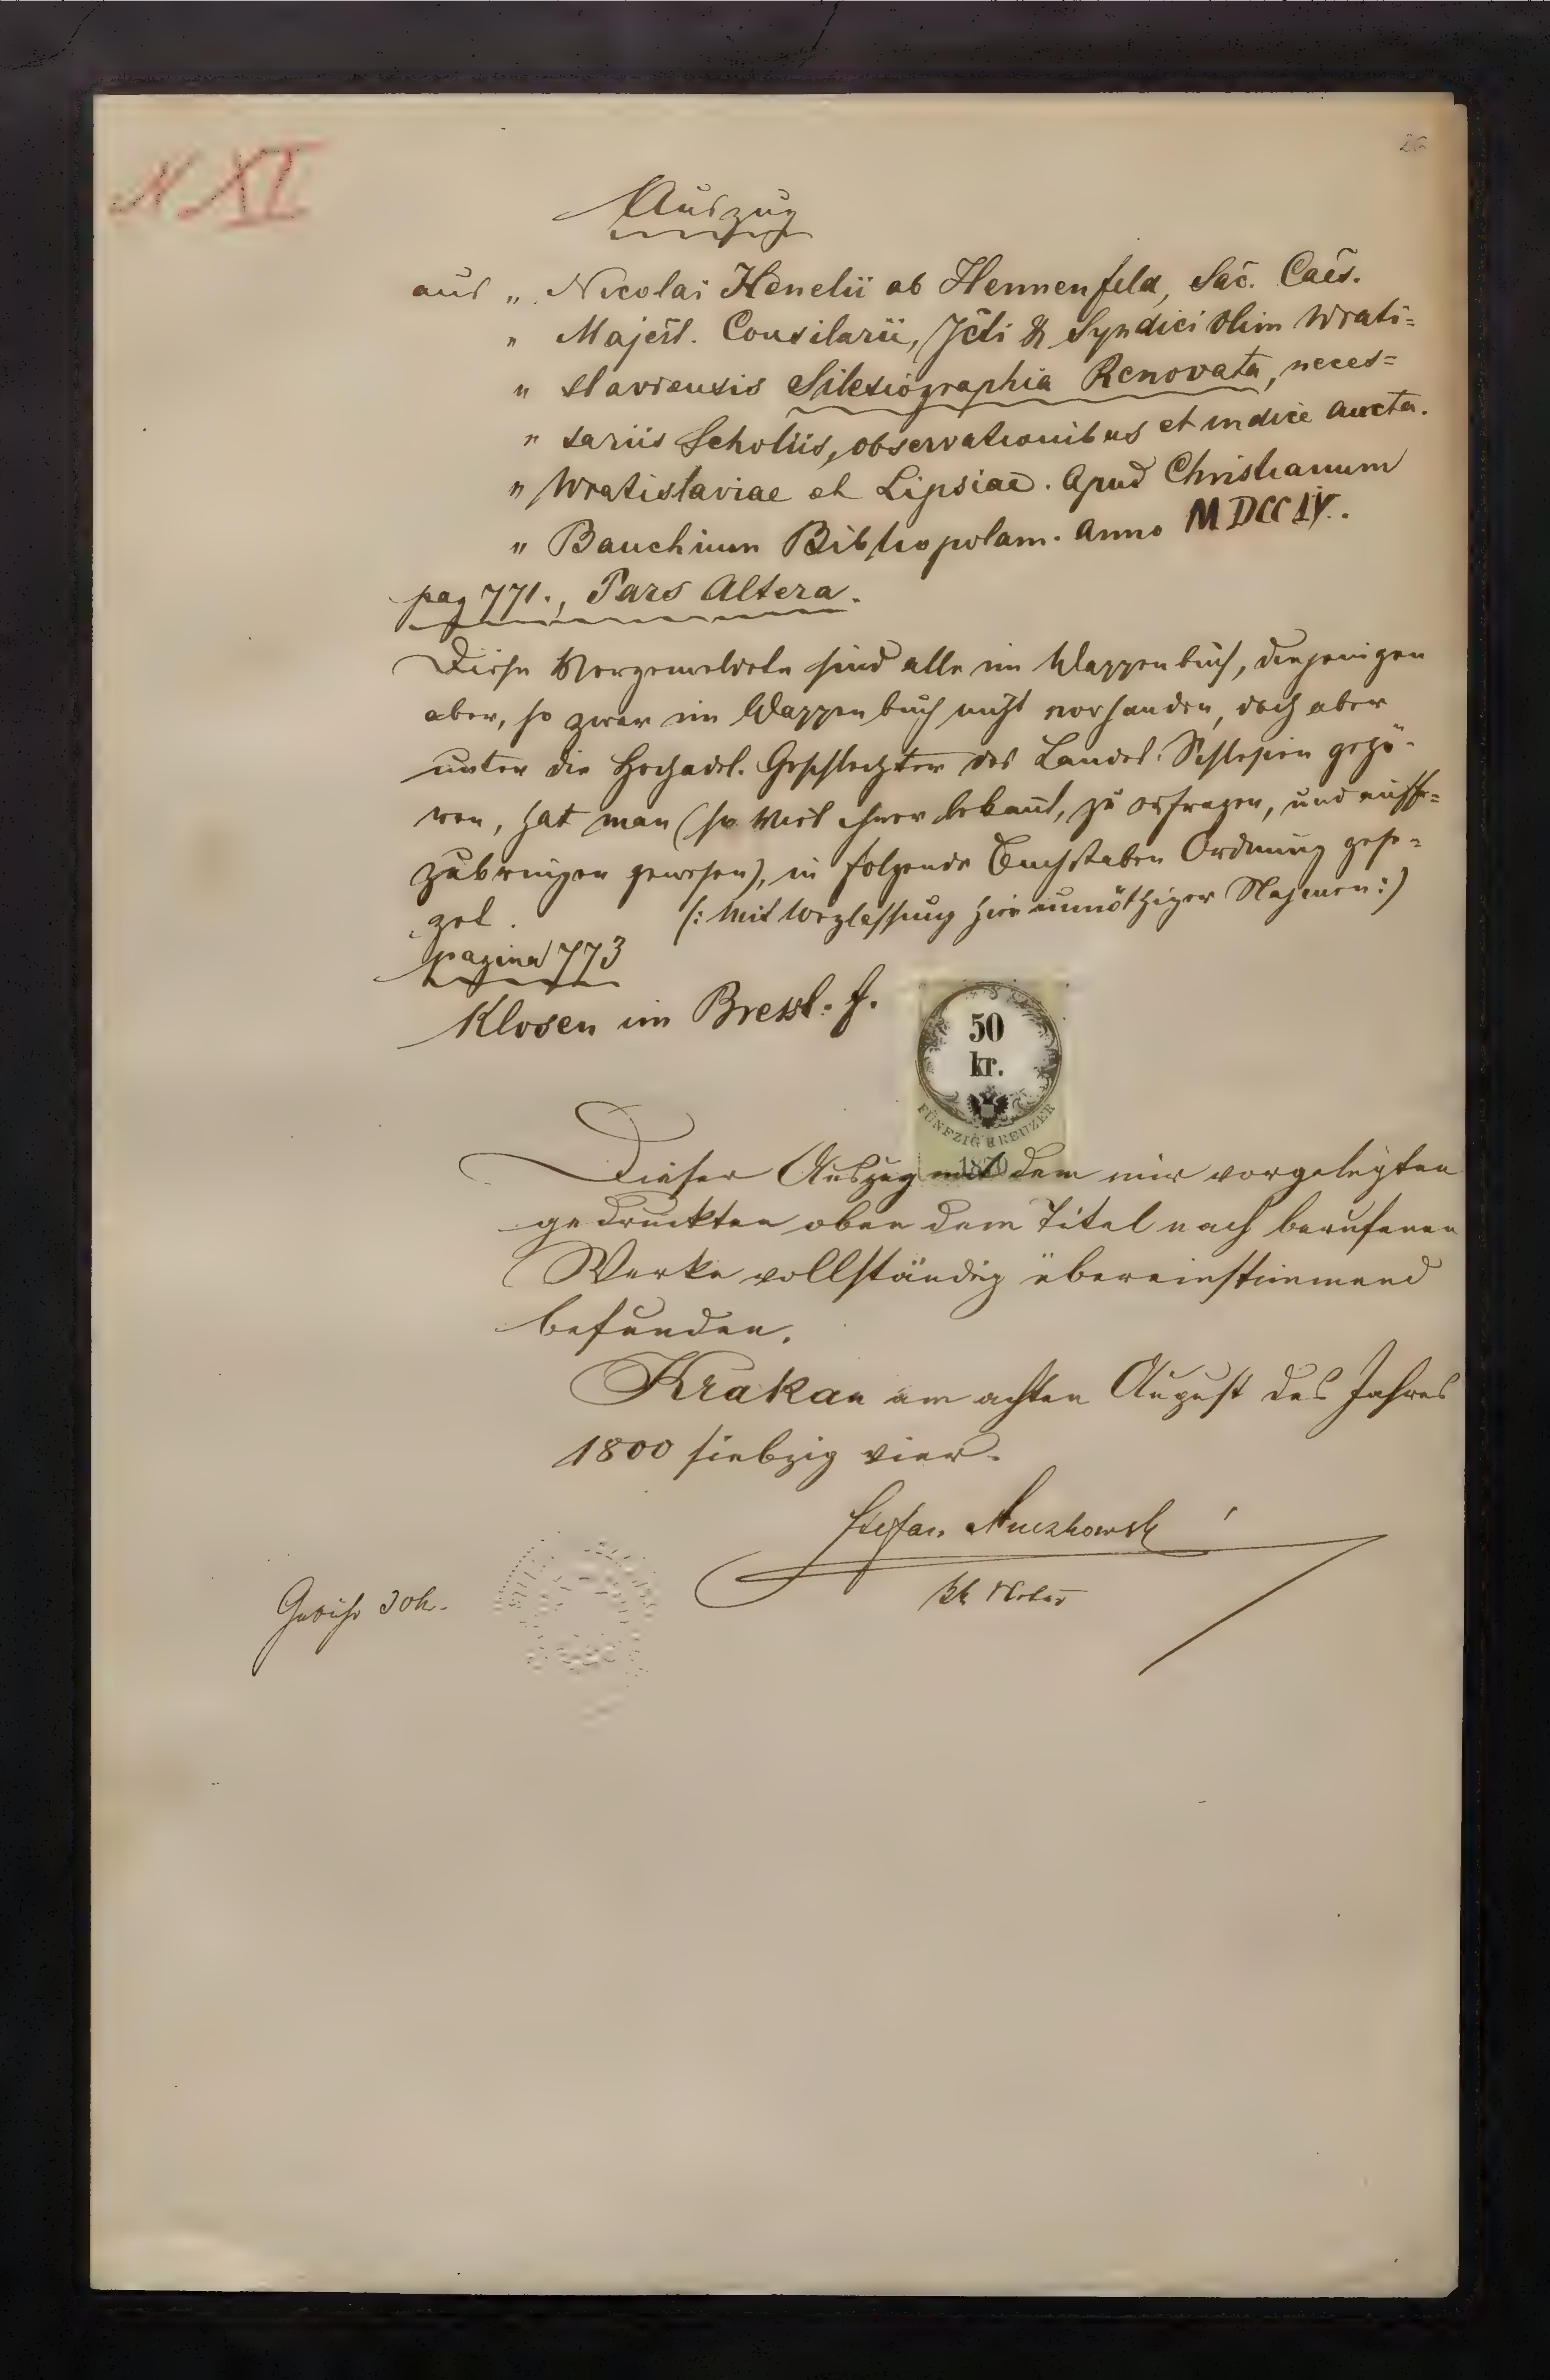 26
N XI
Auszug
aus „ Nicolai Henelii ab Hennenfeld, Sac. Caes.
„ Majest. Consilarii, Jcti & Syndici olim Wrati=
„ slaviensis Silesiographia Renovata, neces=
„ sariis Scholiis, observationibus et indice aucta.
„ Wratislaviae et Lipsiae. Apud Christianum
„ Bauchium Bibliopolam. Anno MDCCIV.
pag 771., Pars Altera.
Diese Vorgemeldete sind alle im Wappenbuch, diejenigen
aber, so zwar im Wappenbuch nicht vorhanden, doch aber
unter die Hochadel. Geschlechter des Landes Schlesien gehö-
ren, hat man (so viel ihrer bekannt, zu erfragen, und auff=
zubringen gewesen), in folgende Buchstaben Ordnung gese=
zet. (: Mit Weglassung hier unnöthiger Nahmen :)
pagina 773
Klosen im Bressl. f.
50
kr.
FÜNFZIG KREUZER
1870
Dieser Auszug mit dem mir vorgelegten
gedruckten oben dem Titel nach berufenen
Werke vollständig übereinstimmend
befunden.
Krakau am achten August des Jahres
1800 siebzig vier.
Stefan Muczkowski
kk Notar